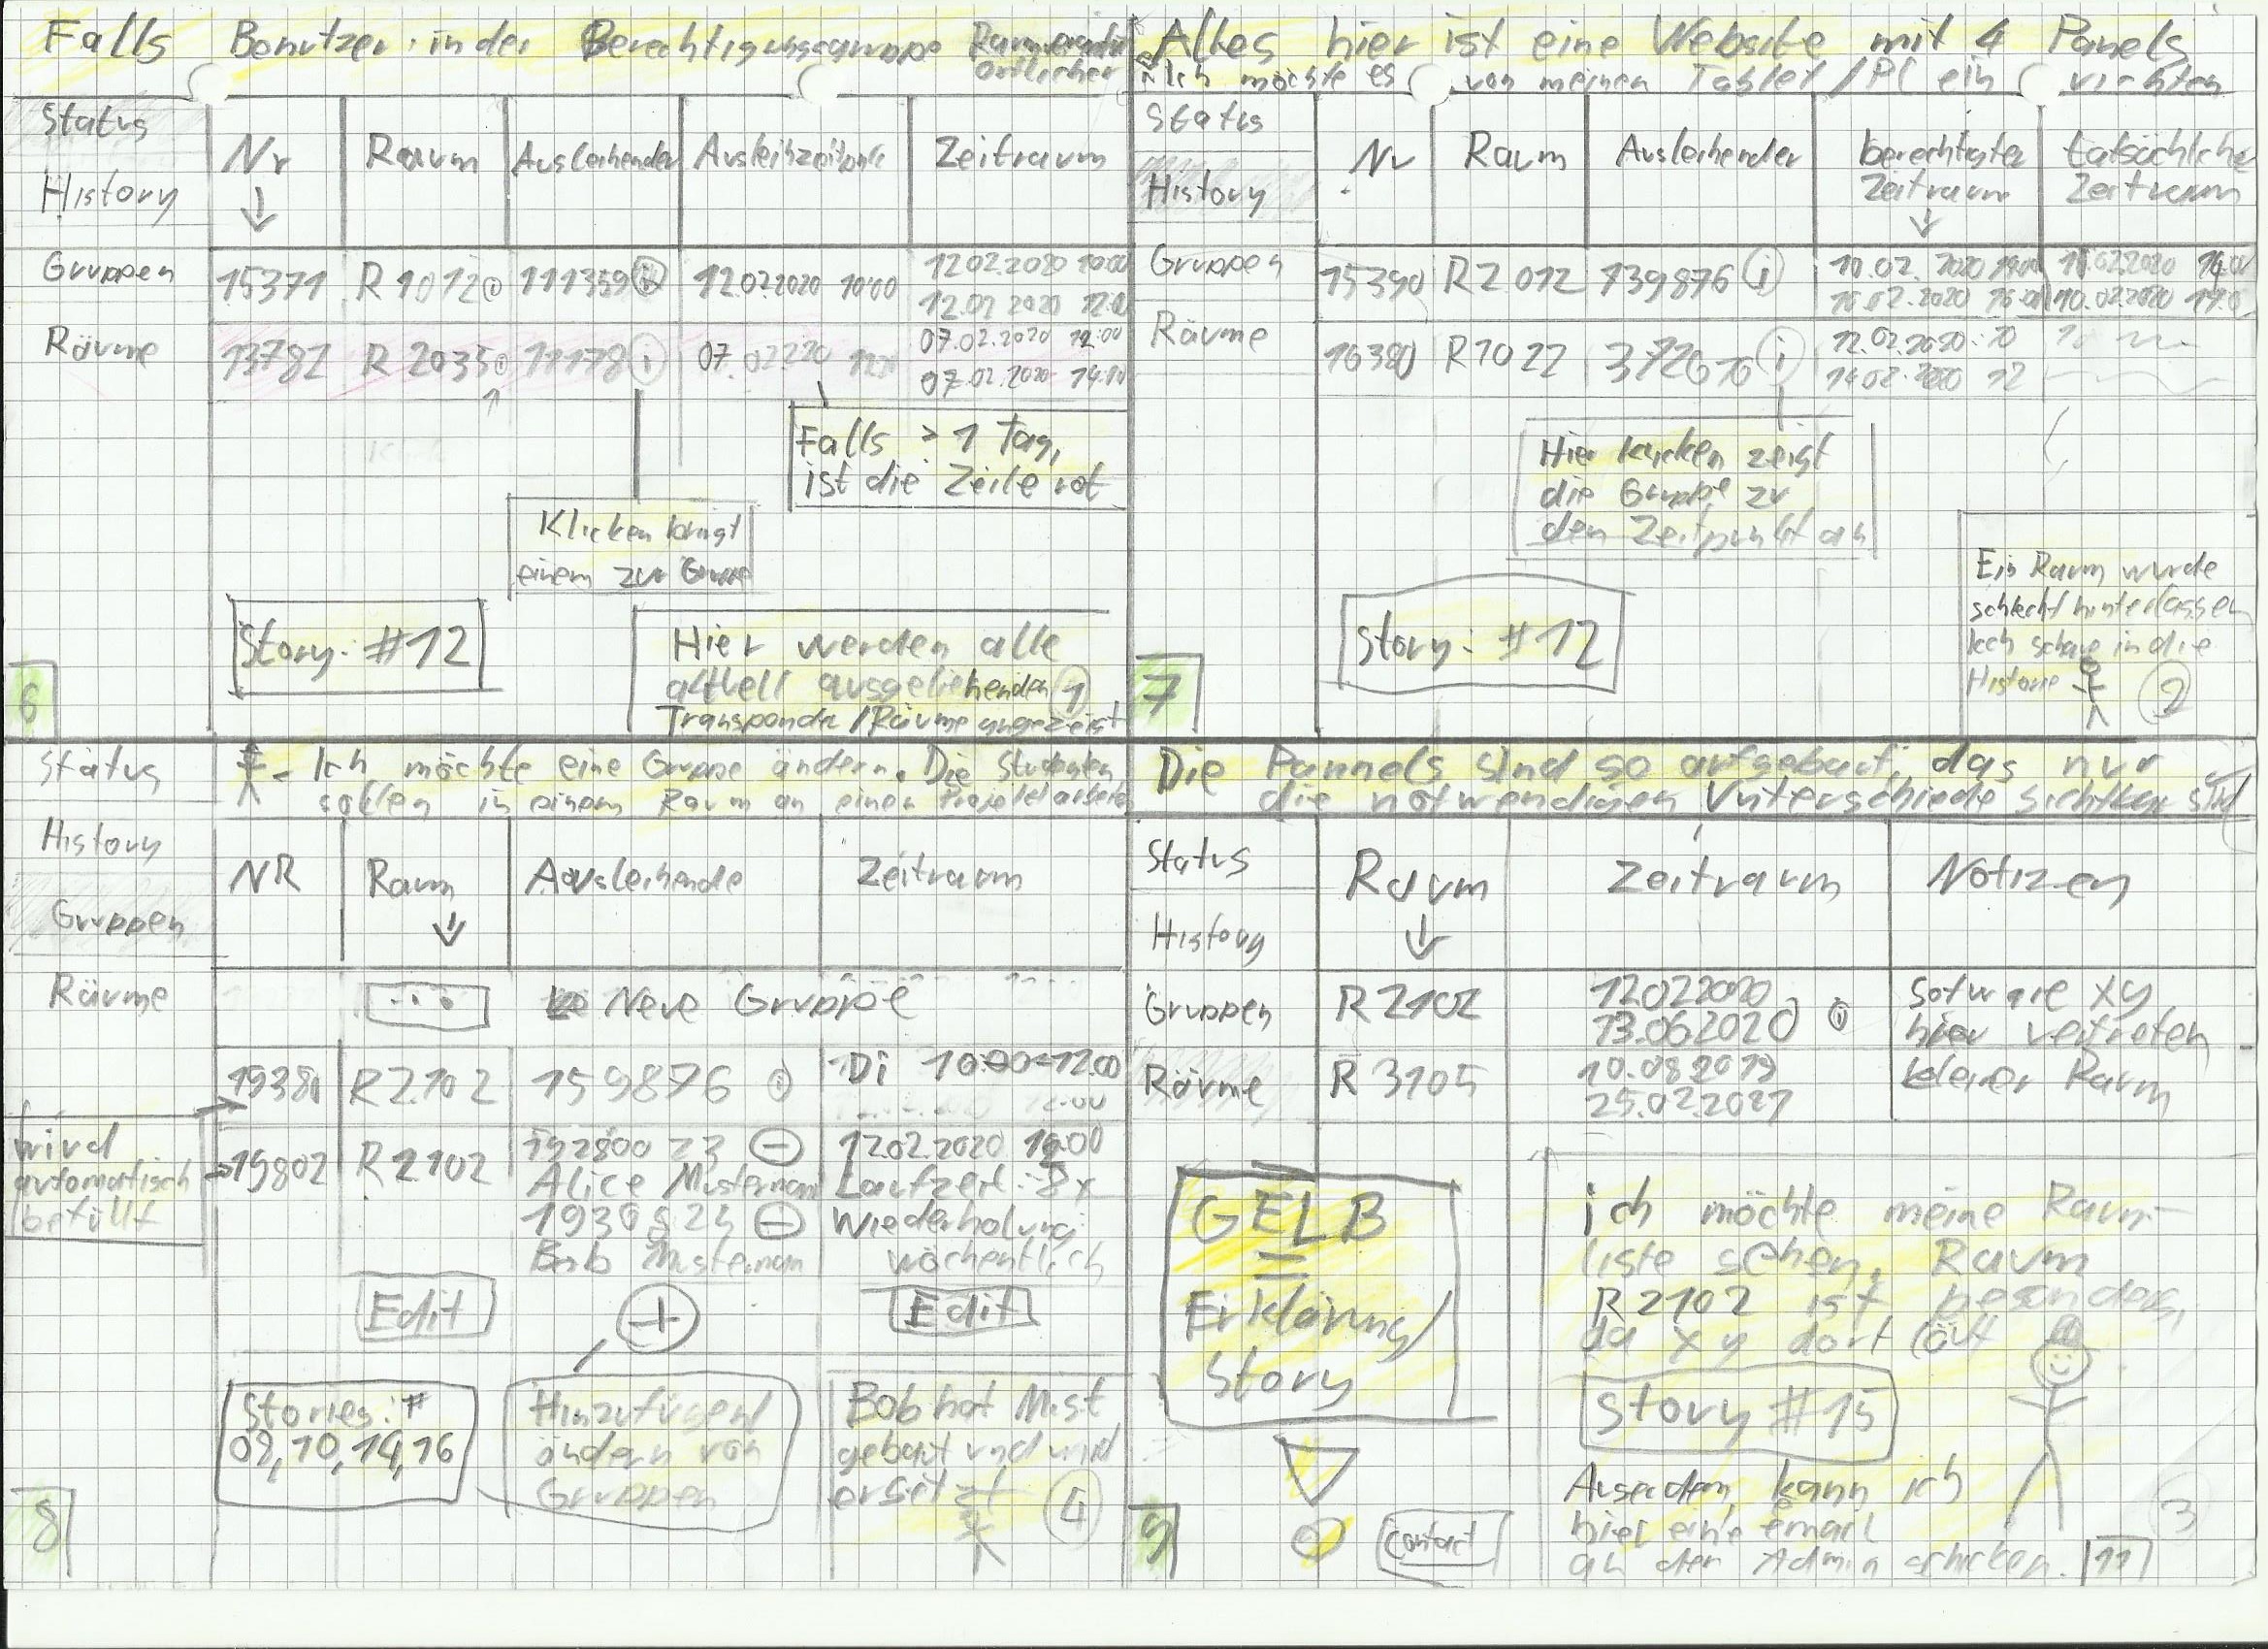 Falls Benutzer in der Berechtigungsgruppe
örtlicher
Status
History
Gruppen
Räume
Nr
Raum
Ausleihender
Zeitraum
15371 R 1012 i 111359 i 12.02.2020 10:00 12.02.2020 10:00
12.02.2020 12:00
13782 R 2035 i 11178 i 07.02.2020 07.02.2020 12:00
07.02.2020 14:00
Falls > 1 Tag,
ist die Zeile rot
Klicken bringt
einem zur Gruppe
Story: #12
Hier werden alle
aktuell ausgeliehenden 1
Transponder /Räume angezeigt
6
Alles hier ist eine Website mit 4 Panels
Ich möchte es von meinen Tablet /PC ein richten
Status
History
Gruppen
Räume
Nr
Raum
Ausleihender
berechtigter
Zeitraum
tatsächlicher
Zeitraum
15390 R2012 139876 i 10.02.2020
10.02.2020
16380 R1022 372676 i 12.02.2020 10
14.02.2020 12
Hier klicken zeigt
die Gruppe zu
den Zeitpunkt an
Story: #12
Ein Raum wurde
schlecht hinterlassen
Ich schaue in die
Historie 2
7
Status
History
Gruppen
Räume
- Ich möchte eine Gruppe ändern. Die Studenten
sollen in einem Raum an einen Projekt arbeiten
NR
Raum
Ausleihende
Zeitraum
... Neue Gruppe
19380 R2102 159876 i Di 10:00-12:00
19802 R2102
Alice Musterman
Bob Musterman
12.02.2020
Laufzeit: 8x
Wiederholung:
wöchentlich
wird
automatisch
befüllt
Edit + Edit
Stories: #
09, 10, 14, 16
Hinzufügen/
ändern von
Gruppen
Bob hat Mist
gebaut und wird
ersetzt
4
8
Die Pannels sind so aufgebaut, das nur
die notwendigen Unterschiede sichtbar sind
Status
History
Gruppen
Räume
Raum
Zeitraum
Notizen
R2102 12.02.2020
13.06.2020 i
Sotware xy
hier vertreten
R 3105 10.08.2019
25.02.2021
kleiner Raum
GELB
=
Erklärung/
Story
ich möchte meine Raum-
liste sehen. Raum
R2102 ist besonders,
da xy dort läuft
Story #15
Auserdem kann ich
hier eine email
an den Admin schicken. 11
3
contact
9